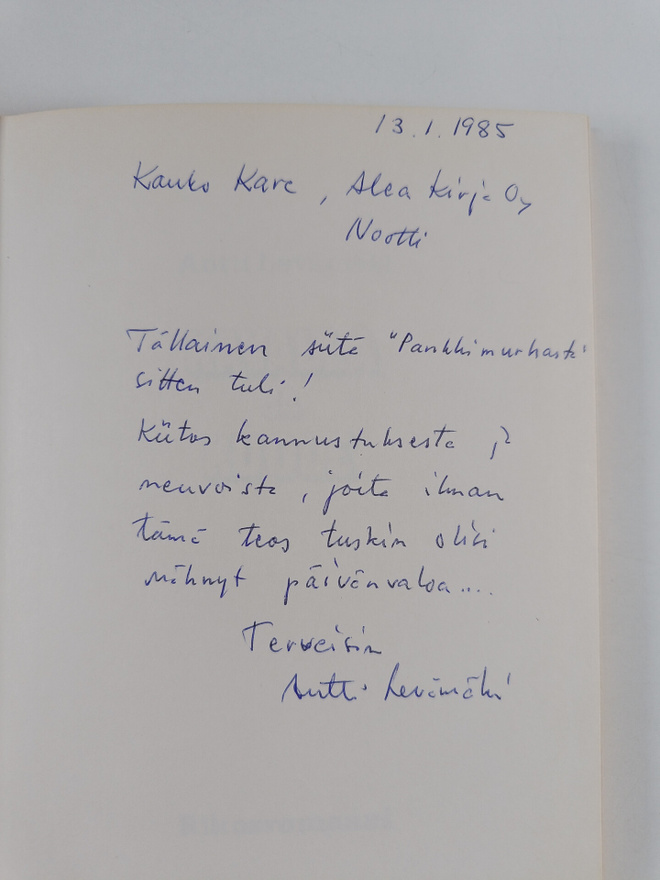 13.1.1985
Kauko Kare, Alea Kirja Oy
Nootti
Tällainen siitä "Pankkimurhasta"
sitten tuli!
Kiitos kannustuksesta ja
neuvoista, joita ilman
tämä teos tuskin olisi
nähnyt päivänvaloa....
Terveisin
Antti Levämäki